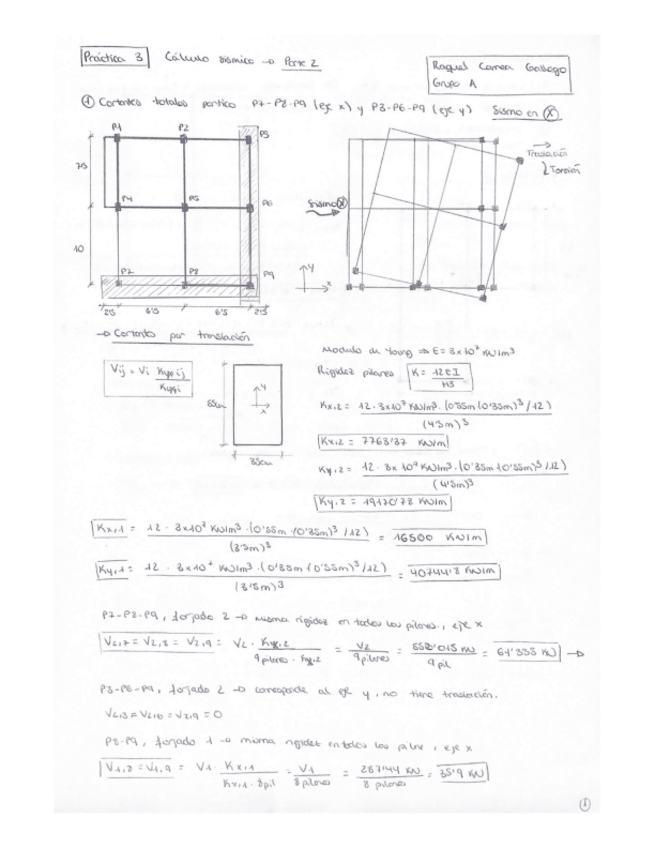 Práctica 3 Cálculo sísmico → Parte 2
Raquel Correa Gallego
Grupo A
① Cortantes totales pórtico P7-P8-P9 (eje x) y P3-P6-P9 (eje y) Sismo en X
P1 P2 P3
7'5
P4 P5 P6
10
P7 P8 P9
2'5 6'5 6'5 2'5
y
x
Sismo X
Traslación
Torsión
→ Cortante por traslación
Módulo de Young ⇒ E = 3x10⁷ KN/m²
Rigidez pilares K = 12EI / H3
55cm
y
x
35cm
Kx,2 = 12 · 3x10⁷ KN/m² · (0'55m (0'35m)³/12) / (4'5m)³
Kx,2 = 7763'37 KN/m
Ky,2 = 12 · 3x10⁷ KN/m² · (0'35m (0'55m)³/12) / (4'5m)³
Ky,2 = 19170'78 KN/m
Kx,1 = 12 · 3x10⁷ KN/m² · (0'55m · (0'35m)³/12) / (3'5m)³ = 16500 KN/m
Ky,1 = 12 · 3x10⁷ KN/m² · (0'35m (0'55m)³/12) / (3'5m)³ = 40744'8 KN/m
P7-P8-P9, forjado 2 → misma rigidez en todos los pilares, eje x
V2,7 = V2,8 = V2,9 = V2 · / 9 pilares · = V2 / 9 pilares = / 9 pil = KN →
P3-P6-P9, forjado 2 → corresponde al eje y, no tiene traslación.
V2,3 = V2,6 = V2,9 = 0
P8-P9, forjado 1 → misma rigidez en todos los pilares, eje x
V1,8 = V1,9 = V1 · Kx,1 / Kx,1 · 8pil = V1 / 8 pilares = 287'44 KN / 8 pilares = 35'9 KN
1